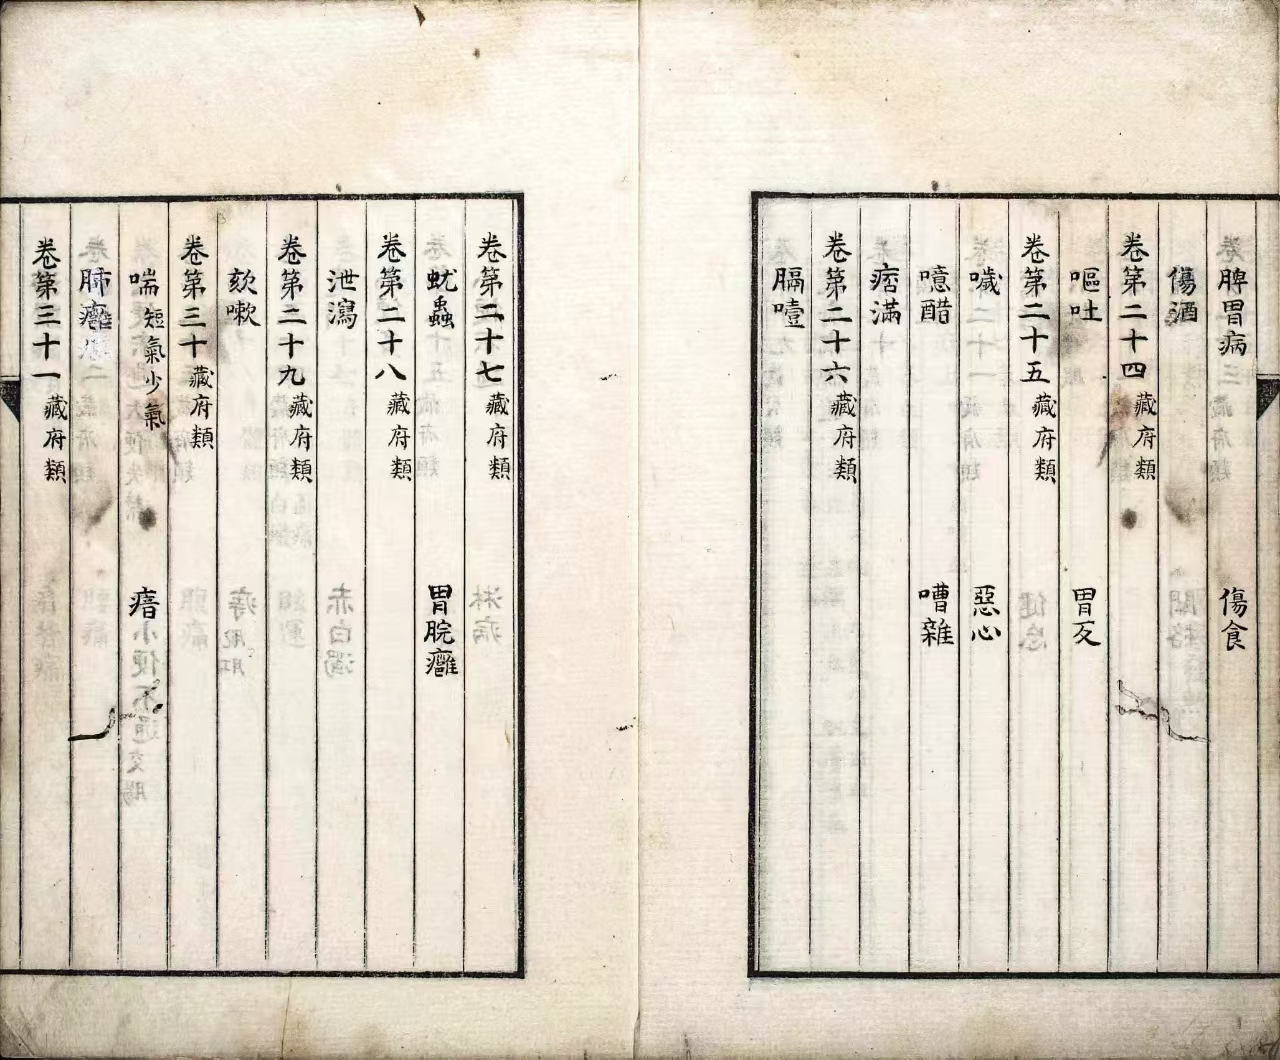 脾胃病　傷食
傷酒
卷第二十四藏府類
嘔吐　胃反
卷第二十五藏府類
噦　惡心
噫醋　嘈雜
痞滿
卷第二十六藏府類
膈噎
卷第二十七藏府類
蚘蟲　胃脘癰
卷第二十八藏府類
泄瀉
卷第二十九藏府類
欬嗽
卷第三十藏府類
喘短氣少氣　瘖
肺癰
卷第三十一藏府類